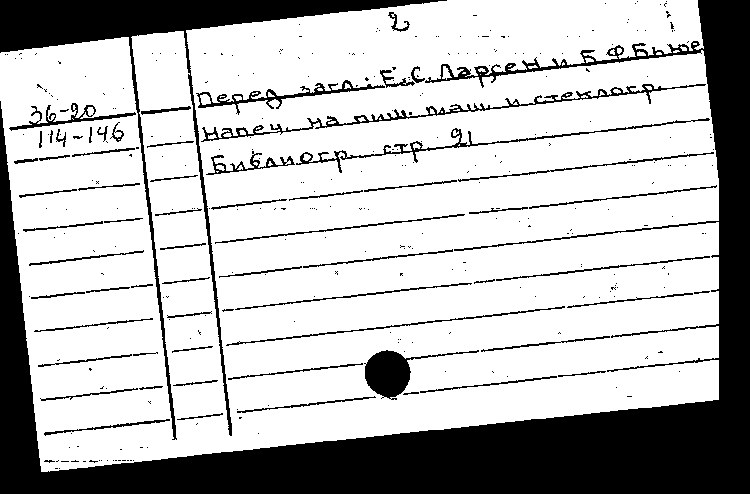 2
Перед загл.: Е.С. Ларсен и Б.Ф Бьюе
36-20
Напеч. на пиш. маш. и стеклогр.
114-146
Библиогр. стр. 21